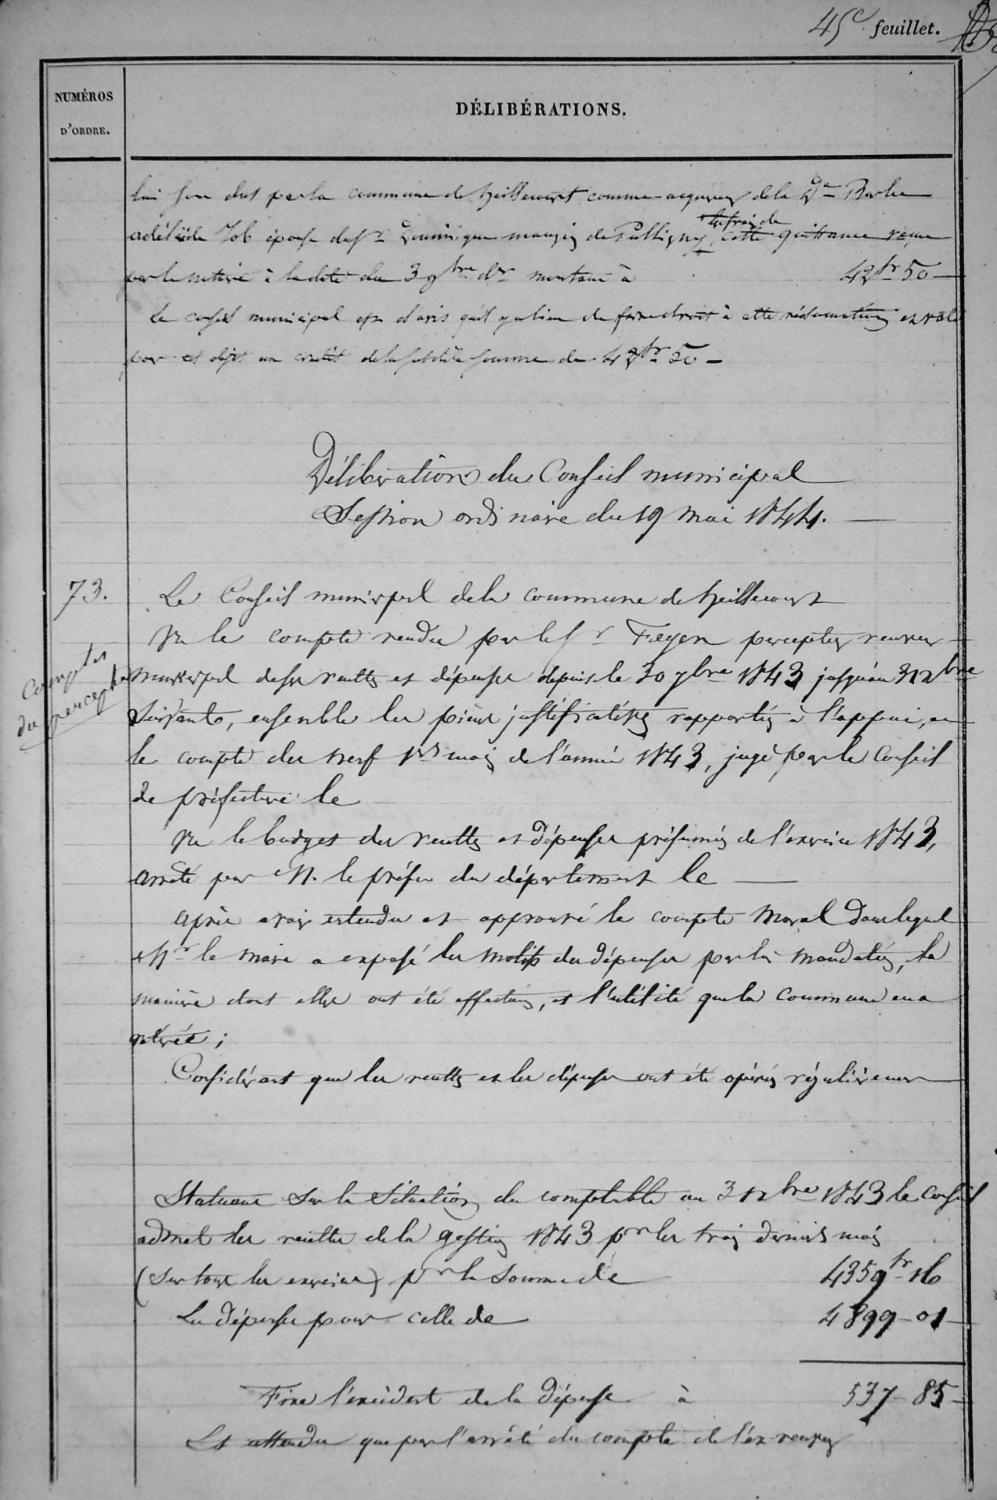 45e feuillet.
NUMÉROS D'ORDRE.
DÉLIBÉRATIONS.
lui sera dus par la commune de heillecourt comme acquereur de la De Barbe
adélaïde Job épouse du Sr Dominique mangin de Pulligny, les frais de cette quittance reçue
par le notaire à la date du 3 9bre der montant à 42fr 50
Le conseil municipal est d'avis qu'il y a lieu de faire droit à cette réclamation et vote
pour cet objet un crédit de la susdite somme de 42fr 50
Délibération du Conseil municipal
Session ordinaire du 19 mai 1844.
73.
Comptes du percepteur
Le Conseil municipal de la commune de heillecourt
Vu le compte rendu par le Sr Freyen percepteur receveur
municipal de ses recettes et dépenses depuis le 30 7bre 1843 jusqu'au 31 xbre
Suivante, ensemble les pièces justificatives rapportées à l'appui, et
le compte des neuf 1ers mois de l'année 1843, jugé par le Conseil
de préfecture le
Vu le budget des recettes et dépenses présumées de l'exercice 1843,
arrêté par M. le préfet du département le
après avoir entendu et approuvé le compte moral dans lequel
Mr le maire a exposé les motifs des dépenses par lui mandatées, la
manière dont elles ont été effectuées, et l'utilité que la commune en a
retirée ;
Considérant que les recettes et les dépenses ont été opérées régulièrement
Statuant Sur la Situation du comptable au 31 xbre 1843 le Conseil
admet les recettes de la gestion 1843 pr les trois derniers mois
(Sur tous les exercices) pr la Somme de 4359fr 16
La dépense pour celle de 4899-01
Fixe l'excédent de la dépense à 537-85
Et attendu que par l'arrêté du compte de l'ex-receveur